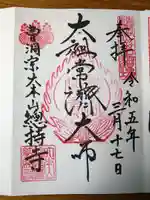 奉拝
令和五年
三月十七日
太祖常濟大師
曹洞宗大本山
總持寺